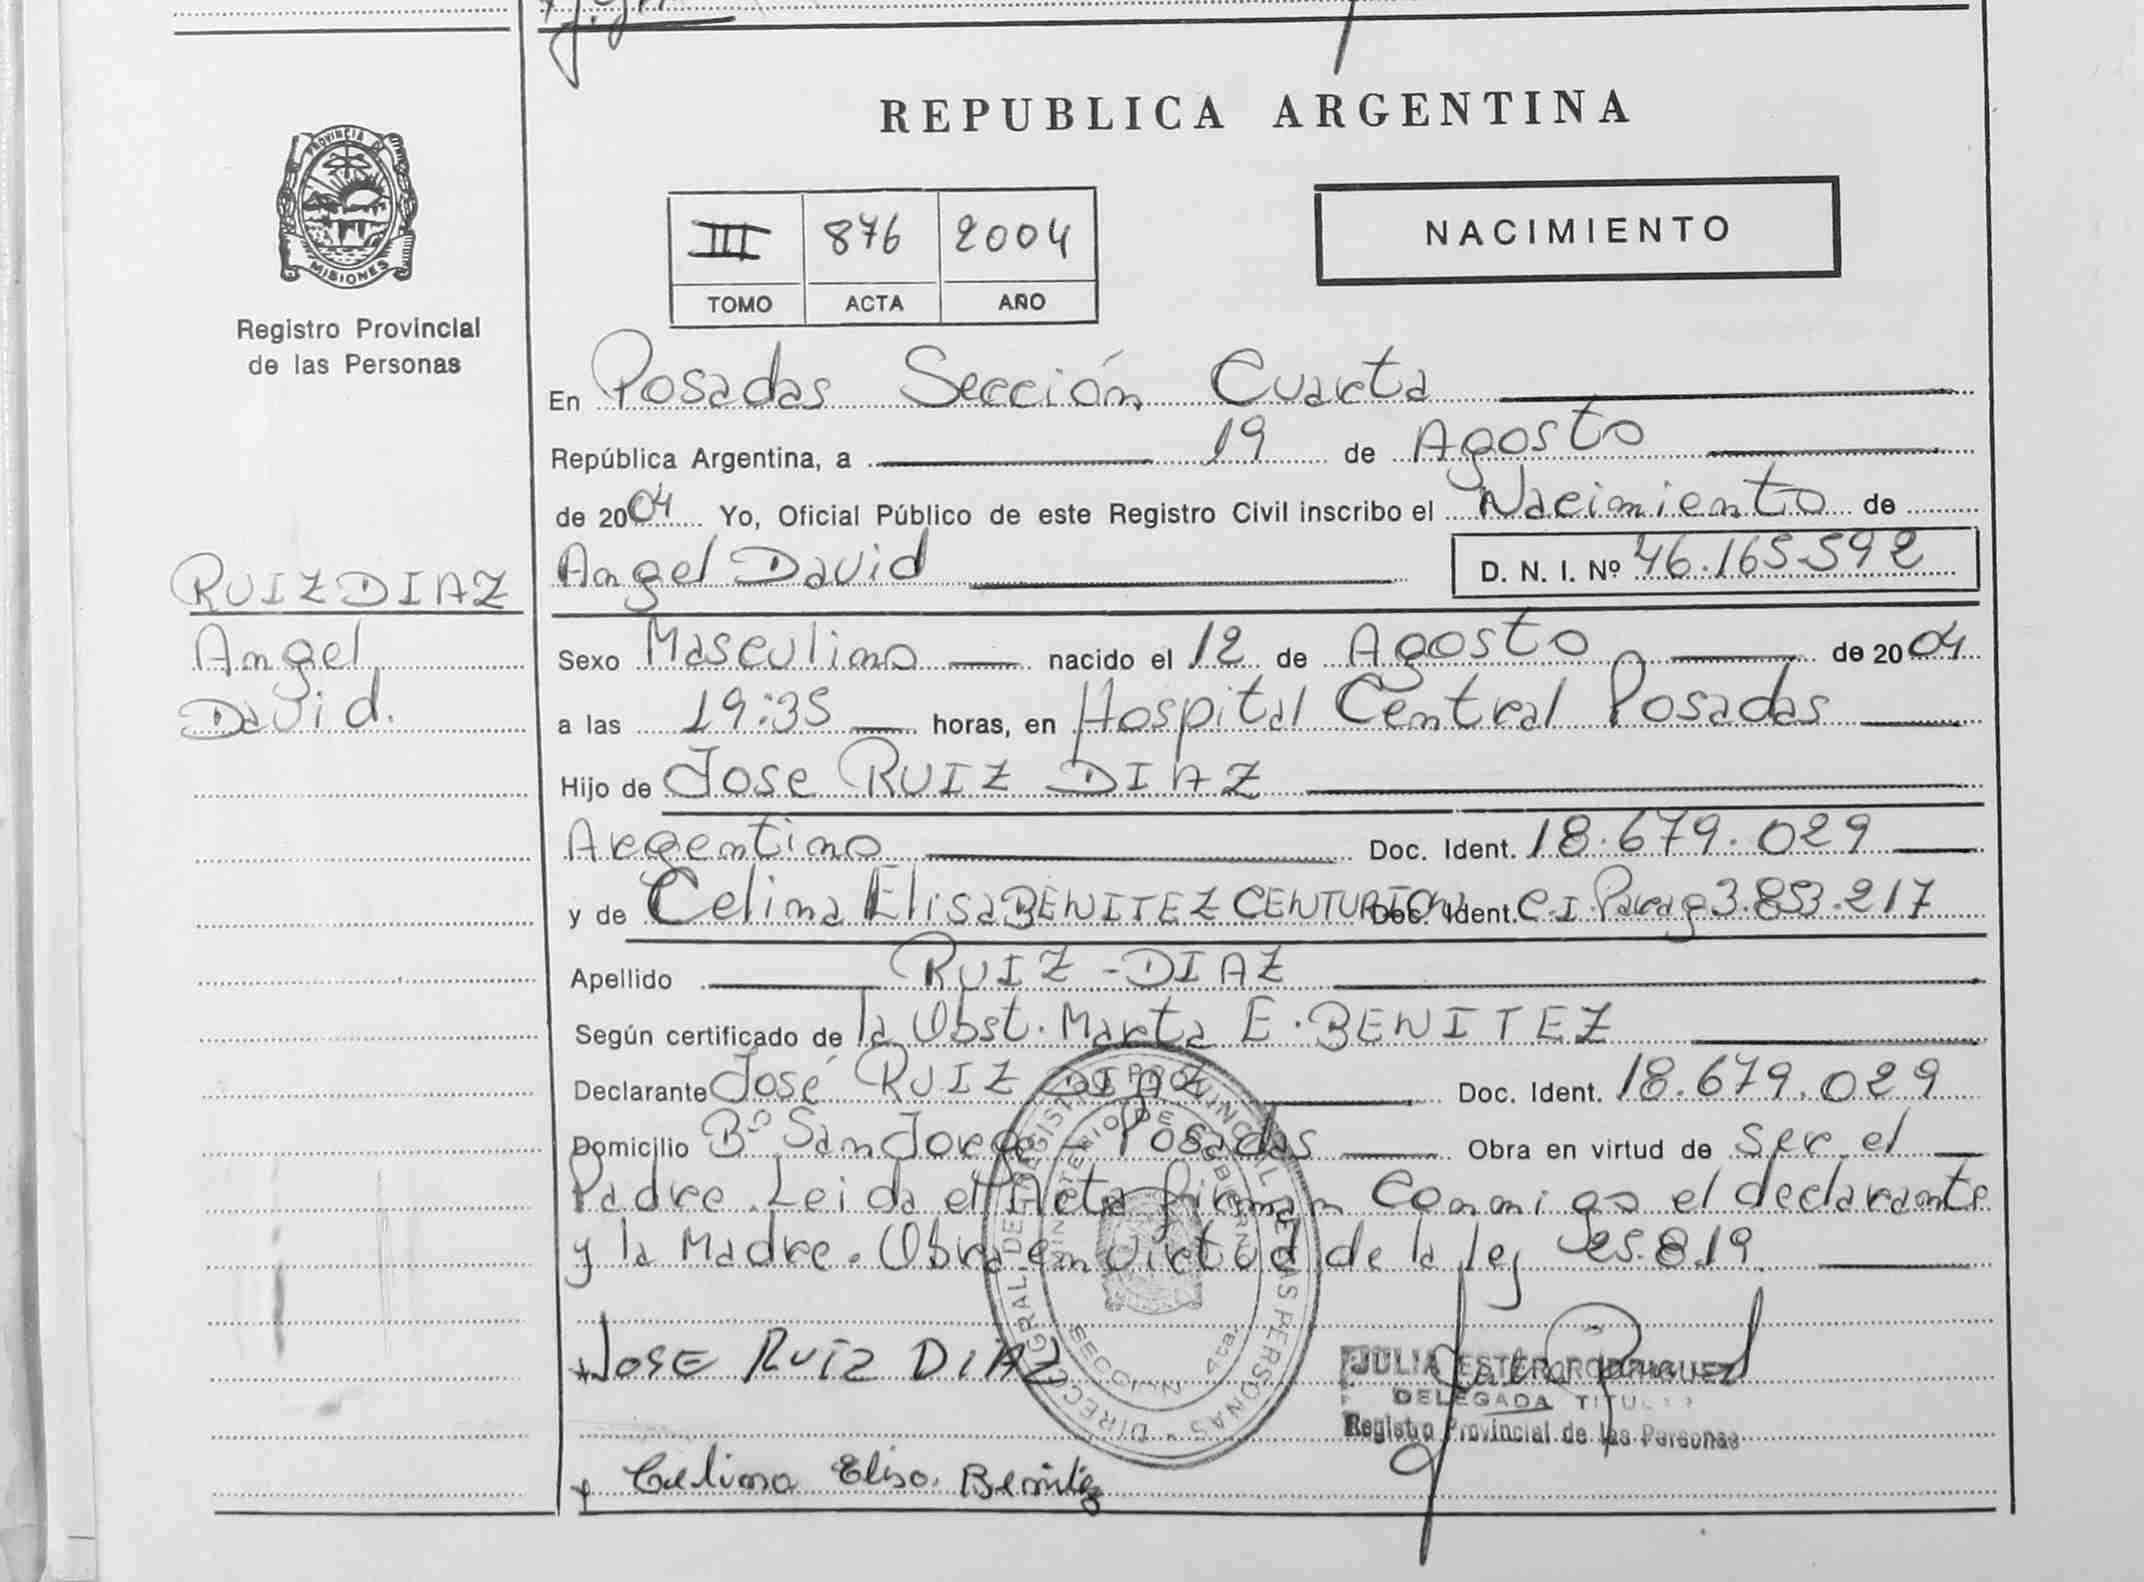 REPUBLICA ARGENTINA
PROVINCIA DE
MISIONES
Registro Provincial
de las Personas
III 876 2004
TOMO ACTA AÑO
NACIMIENTO
En Posadas Sección Cuarta
República Argentina, a 19 de Agosto
de 2004 Yo, Oficial Público de este Registro Civil inscribo el Nacimiento de
RUIZ DIAZ
Angel
David.
Angel David D. N. I. Nº 46.165.592
Sexo Masculino nacido el 12 de Agosto de 2004
a las 19:35 horas, en Hospital Central Posadas
Hijo de Jose RUIZ DIAZ
Argentino Doc. Ident. 18.679.029
y de Celima Elisa BENITEZ CENTURIÓN Doc. Ident. C.I. Parag 3.853.217
Apellido RUIZ-DIAZ
Según certificado de la Obst. Marta E. BENITEZ
Declarante José RUIZ DIAZ Doc. Ident. 18.679.029
Domicilio Bº San Jorge - Posadas Obra en virtud de ser el
Padre. Leida el Acta firman Conmigo el declarante
y la Madre. Obra en virtud de la ley 25.819
JOSE RUIZ DIAZ
Celima Elisa Benitez
DIRECC. GRAL. DE REGISTRO PROVINCIAL DE LAS PERSONAS
MINISTERIO DE GOBIERNO
SECCION 4ta.
JULIA ESTER RODRIGUEZ
DELEGADA TITULAR
Registro Provincial de las Personas